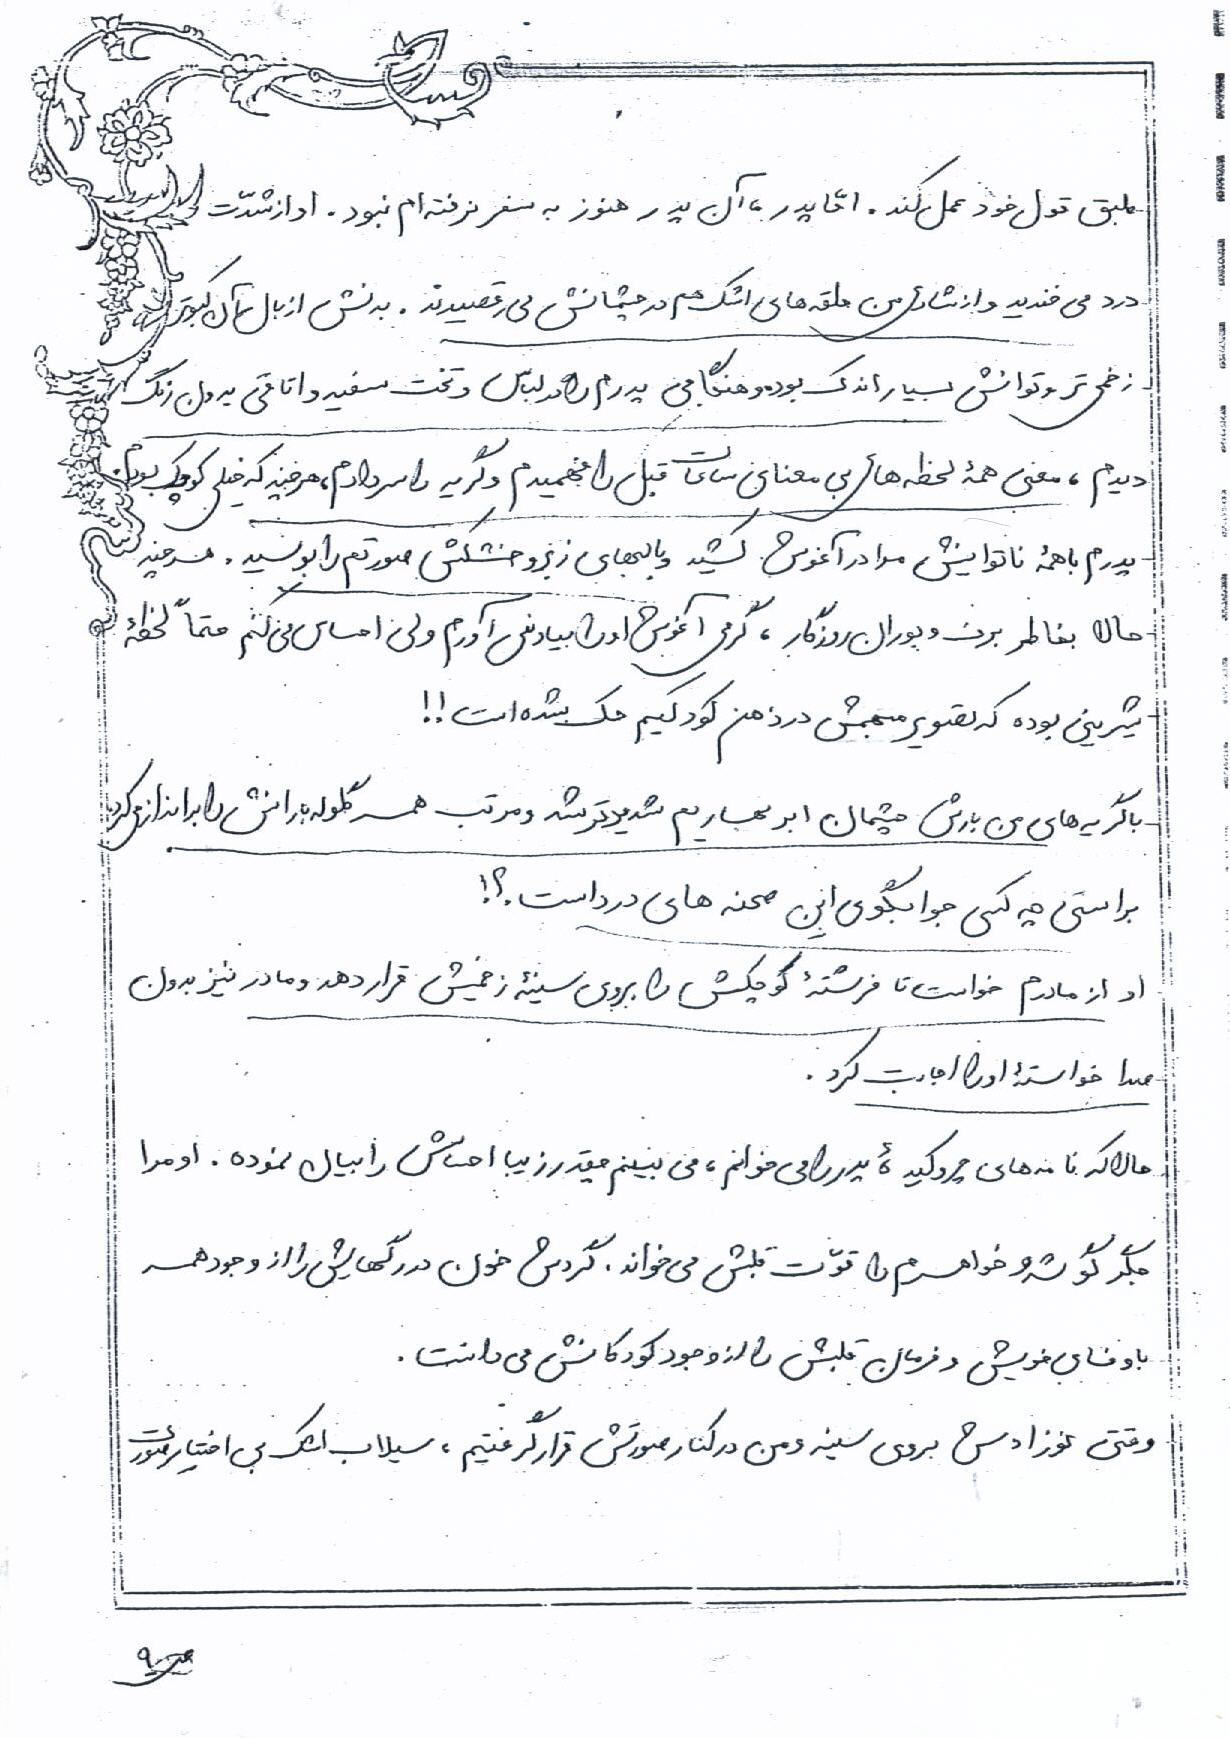 طبق قول خود عمل کند . امّا پدر ، آن پدر هنوز به سفر نرفته ام نبود . او از شدّت
درد می خندید و از شادی من حلقه های اشک هم در چشمانش می رقصیدند . بدنش از بال آن کبوتر
زخمی تر و توانش بسیار اندک بوده و هنگامی پدرم را در لباس و تخت سفید و اتاقی بدون رنگ
دیدم ، معنی همهٔ لحظه های بی معنای ساعات قبل را فهمیدم و گریه را سر دادم ، هر چند که خیلی کوچک بودم .
پدرم با همهٔ ناتوانیش مرا در آغوش کشید و با لبهای زبر و خشکش صورتم را بوسید . هر چند
حالا بخاطر برف و بوران روزگار ، گرمی آغوش او را بیاد نمی آورم ولی احساس می کنم حتماً لحظهٔ
شیرینی بوده که تصویر مبهمش در ذهن کودکیم حک شده است !!
با گریه های من بارش چشمان ابر بهاریم شدیدتر شد و مرتب همسر گلوله بارانش را برانداز می کرد
براستی چه کسی جوابگوی این صحنه های درد است . ؟!
او از مادرم خواست تا فرشتهٔ کوچکش را بروی سینهٔ زخمیش قرار دهد و مادر نیز بدون
صدا خواستهٔ او را اجابت کرد .
حالا که نامه های چروکیدهٔ پدر را می خوانم ، می بینم چقدر زیبا احساسش را بیان نموده . او مرا
جگر گوشه و خواهرم را قوّت قلبش می خواند . گردش خون در رگهایش را از وجود همسر
باوفای خویش و فرمان قلبش را از وجود کودکانش می دانست .
وقتی نوزادش بروی سینه و من در کنار صورتش قرار گرفتیم ، سیلاب اشک بی اختیار صورت
ص ۹